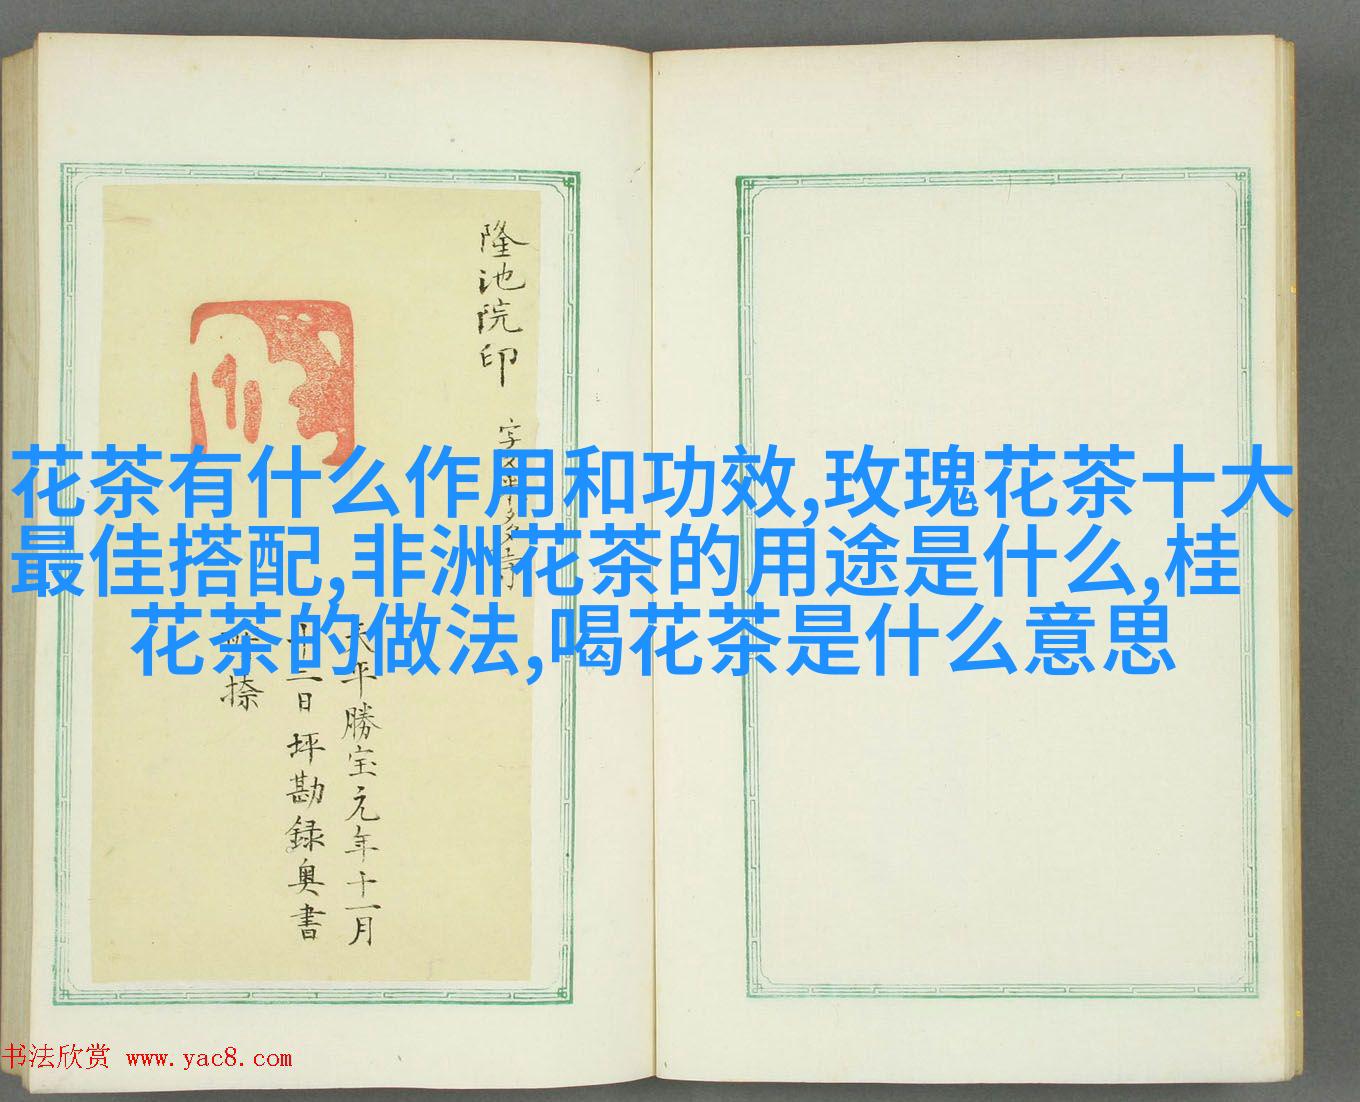 花茶有什么作用和功效,玫瑰花茶十大
最佳搭配,非洲花茶的用途是什么,桂
花茶的做法,喝花茶是什么意思
隆池院印
天平勝宝元年十一月
十二日坪勘録奥書
捺
书法欣赏 www.yac8.com